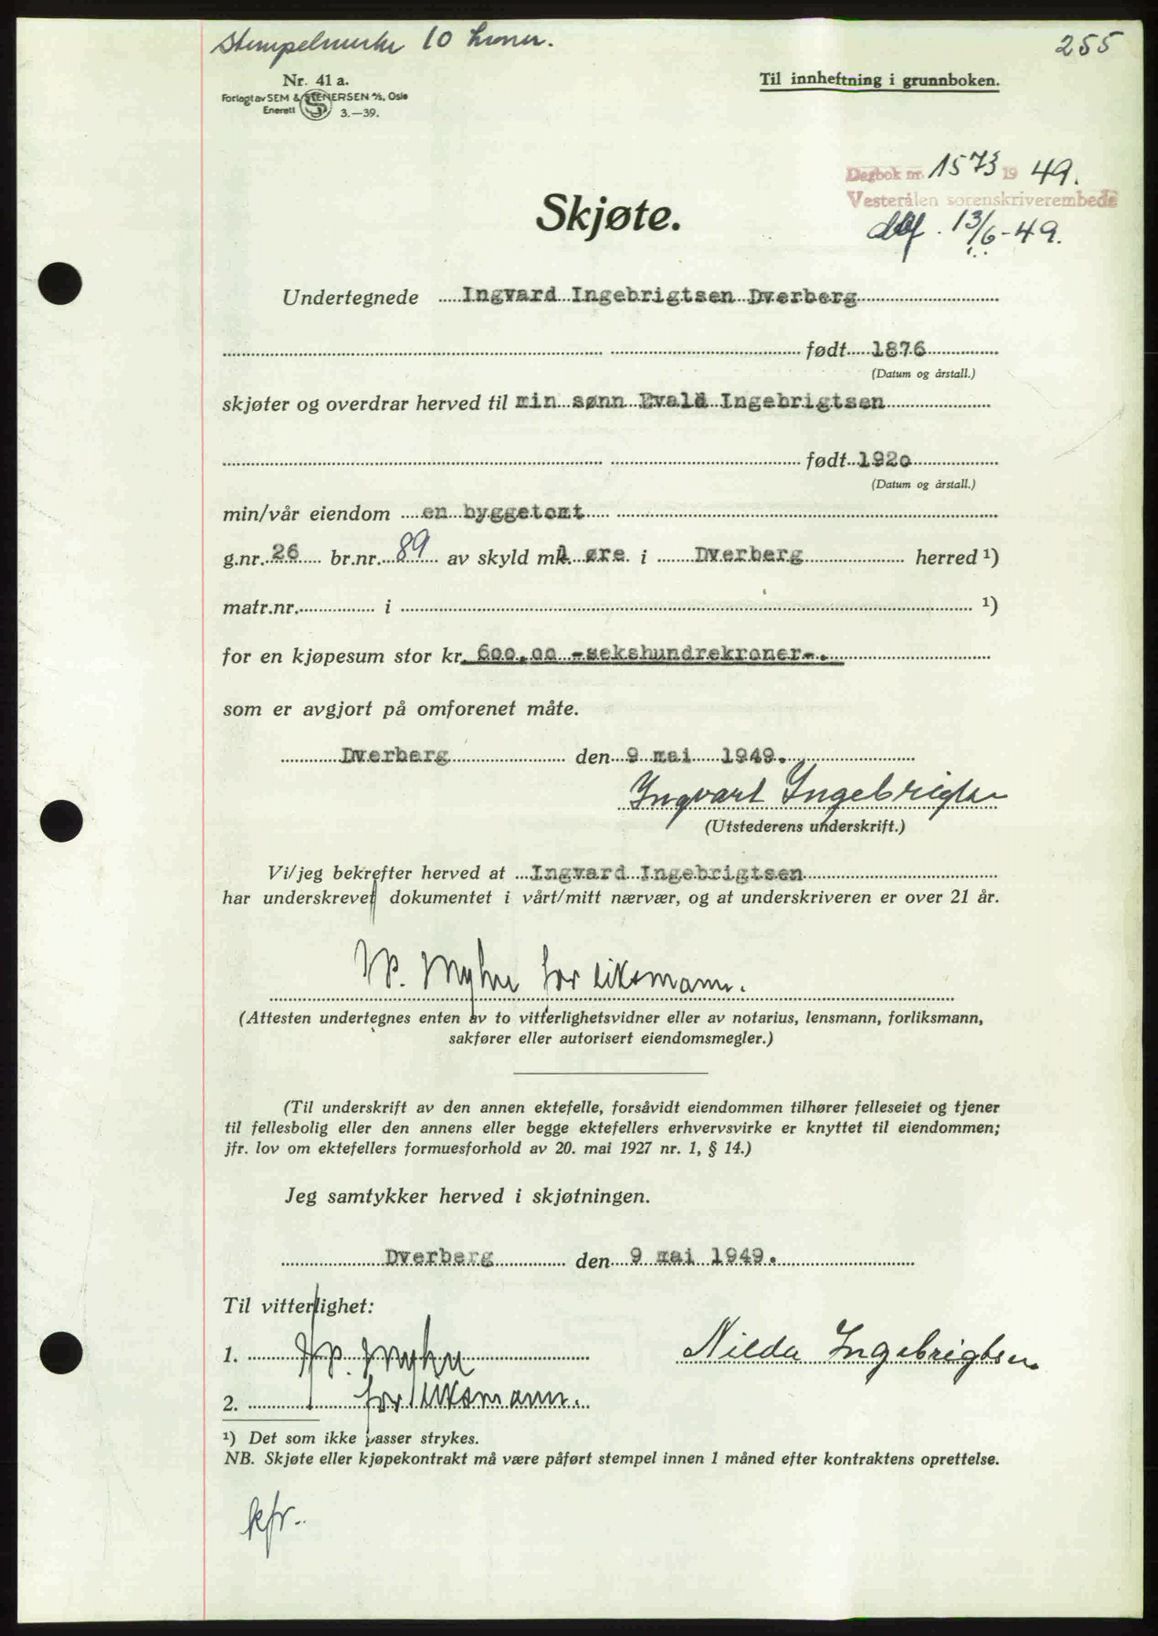 Stempelmerke 10 kroner. 255
Nr. 41 a. Til innheftning i grunnboken.
Forlagt av SEM & STENERSEN A/S, Oslo
Enerett 3.—39.
Dagbok nr. 1573 19 49.
Vesterålen sorenskriverembede
Skjøte. 13/6-49.
Undertegnede Ingvard Ingebrigtsen Dverberg
født 1876
(Datum og årstall.)
skjøter og overdrar herved til min sønn Evald Ingebrigtsen
født 1920
(Datum og årstall.)
min/vår eiendom en byggetomt
g.nr. 26 br.nr. 89 av skyld mk. 1 øre i Dverberg herred ¹)
matr.nr. i ¹)
for en kjøpesum stor kr. 600,00 -sekshundrekroner-.
som er avgjort på omforenet måte.
Dverberg den 9 mai 1949.
Ingvart Ingebrigtsen
(Utstederens underskrift.)
Vi/jeg bekrefter herved at Ingvard Ingebrigtsen
har underskrevet dokumentet i vårt/mitt nærvær, og at underskriveren er over 21 år.
P. Myhre forliksmann.
(Attesten undertegnes enten av to vitterlighetsvidner eller av notarius, lensmann, forliksmann,
sakfører eller autorisert eiendomsmegler.)
(Til underskrift av den annen ektefelle, forsåvidt eiendommen tilhører felleseiet og tjener
til fellesbolig eller den annens eller begge ektefellers erhvervsvirke er knyttet til eiendommen;
jfr. lov om ektefellers formuesforhold av 20. mai 1927 nr. 1, § 14.)
Jeg samtykker herved i skjøtningen.
Dverberg den 9 mai 1949.
Til vitterlighet:
1. P. Myhre Nilda Ingebrigtsen
2. forliksmann.
¹) Det som ikke passer strykes.
NB. Skjøte eller kjøpekontrakt må være påført stempel innen 1 måned efter kontraktens oprettelse.
kfr.